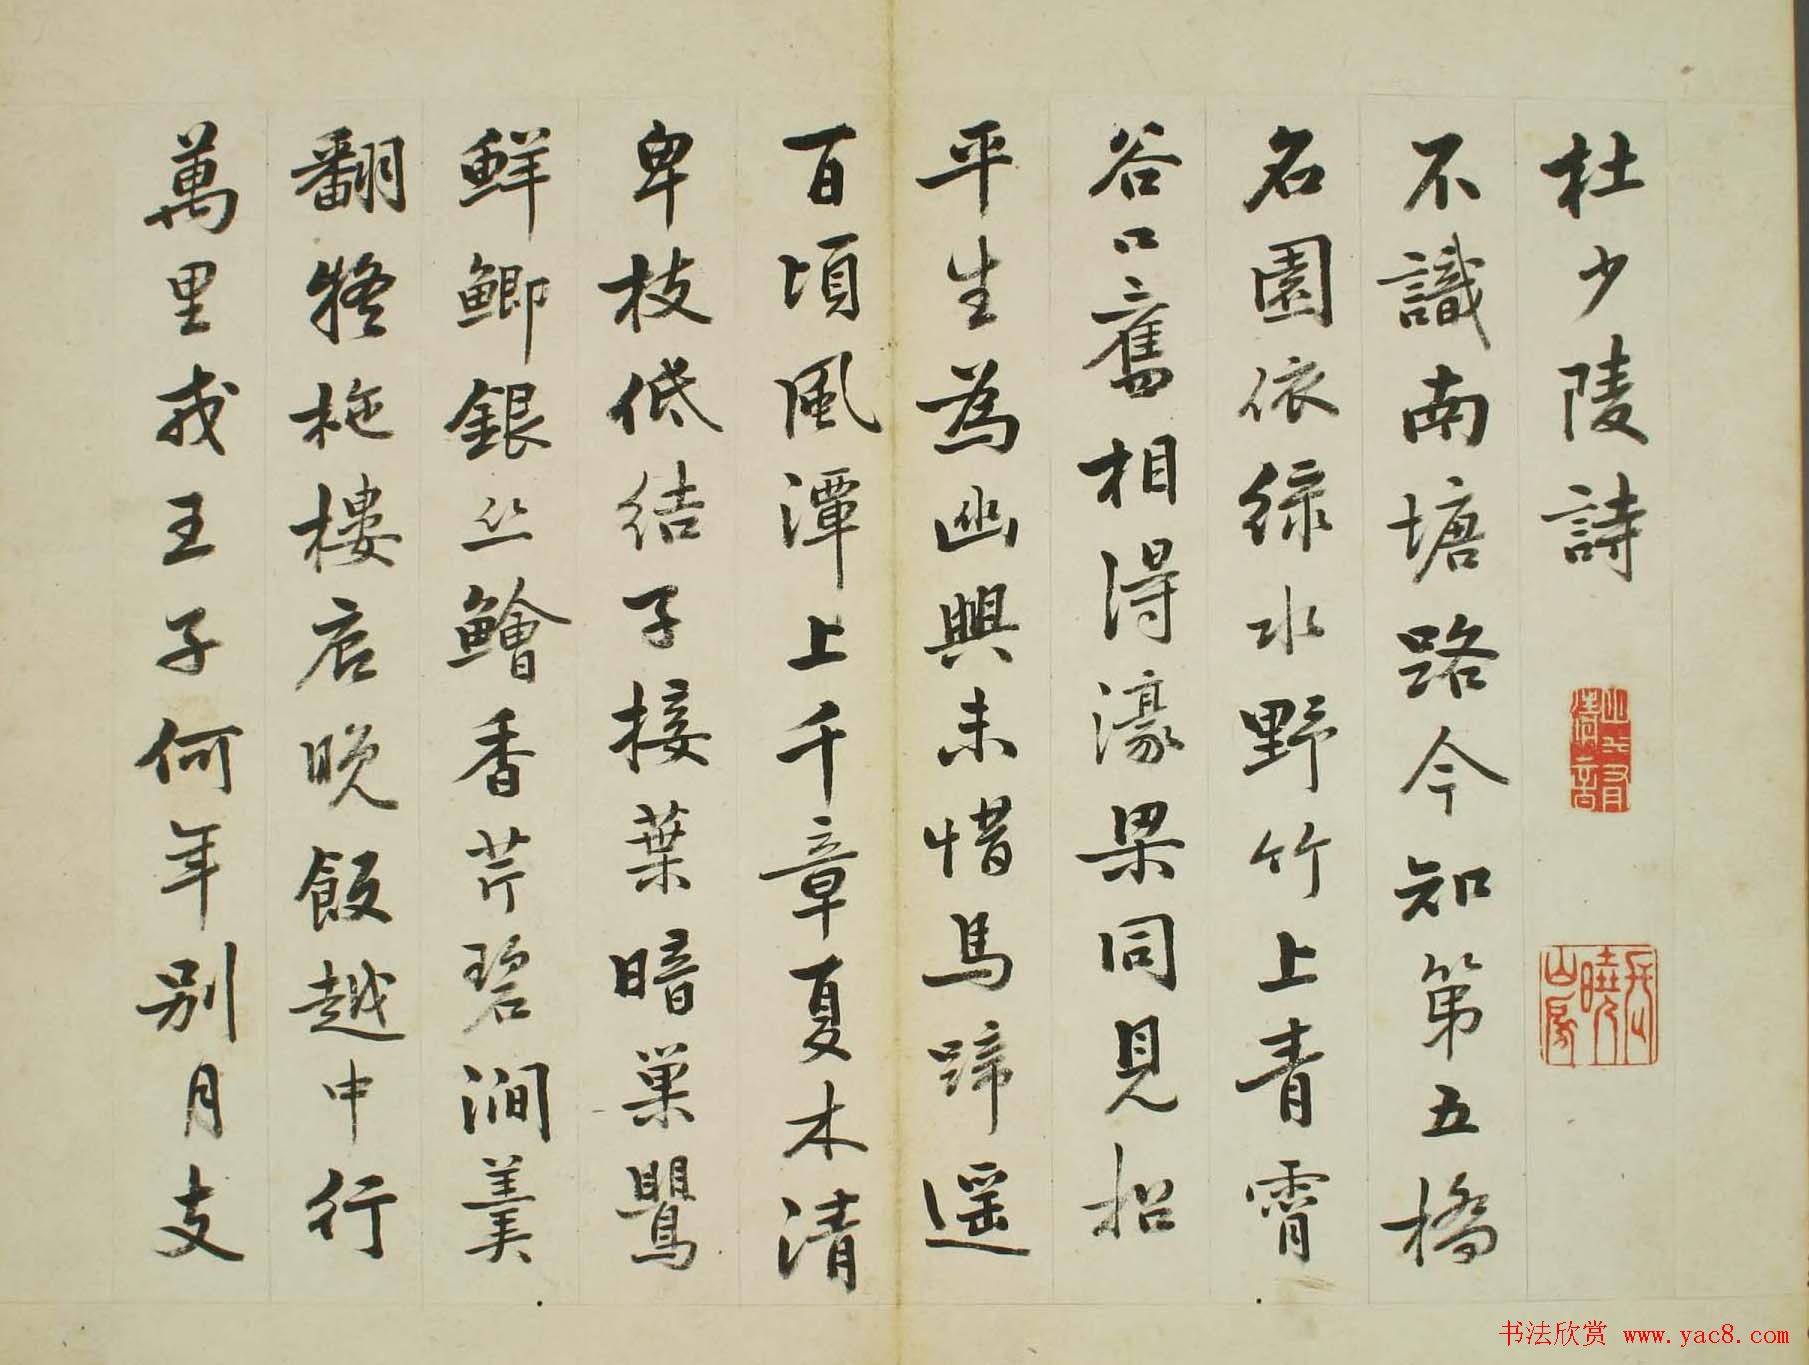 杜少陵詩
不識南塘路今知第五橋
名園依綠水野竹上青霄
谷口舊相得濠梁同見招
平生為幽興未惜馬蹄遥
百頃風潭上千章夏木清
卑枝低結子接葉暗巢鸎
鮮鯽銀丝鱠香芹碧澗羹
翻疑柂樓底晚飯越中行
萬里戎王子何年别月支
书法欣赏 www.yac8.com